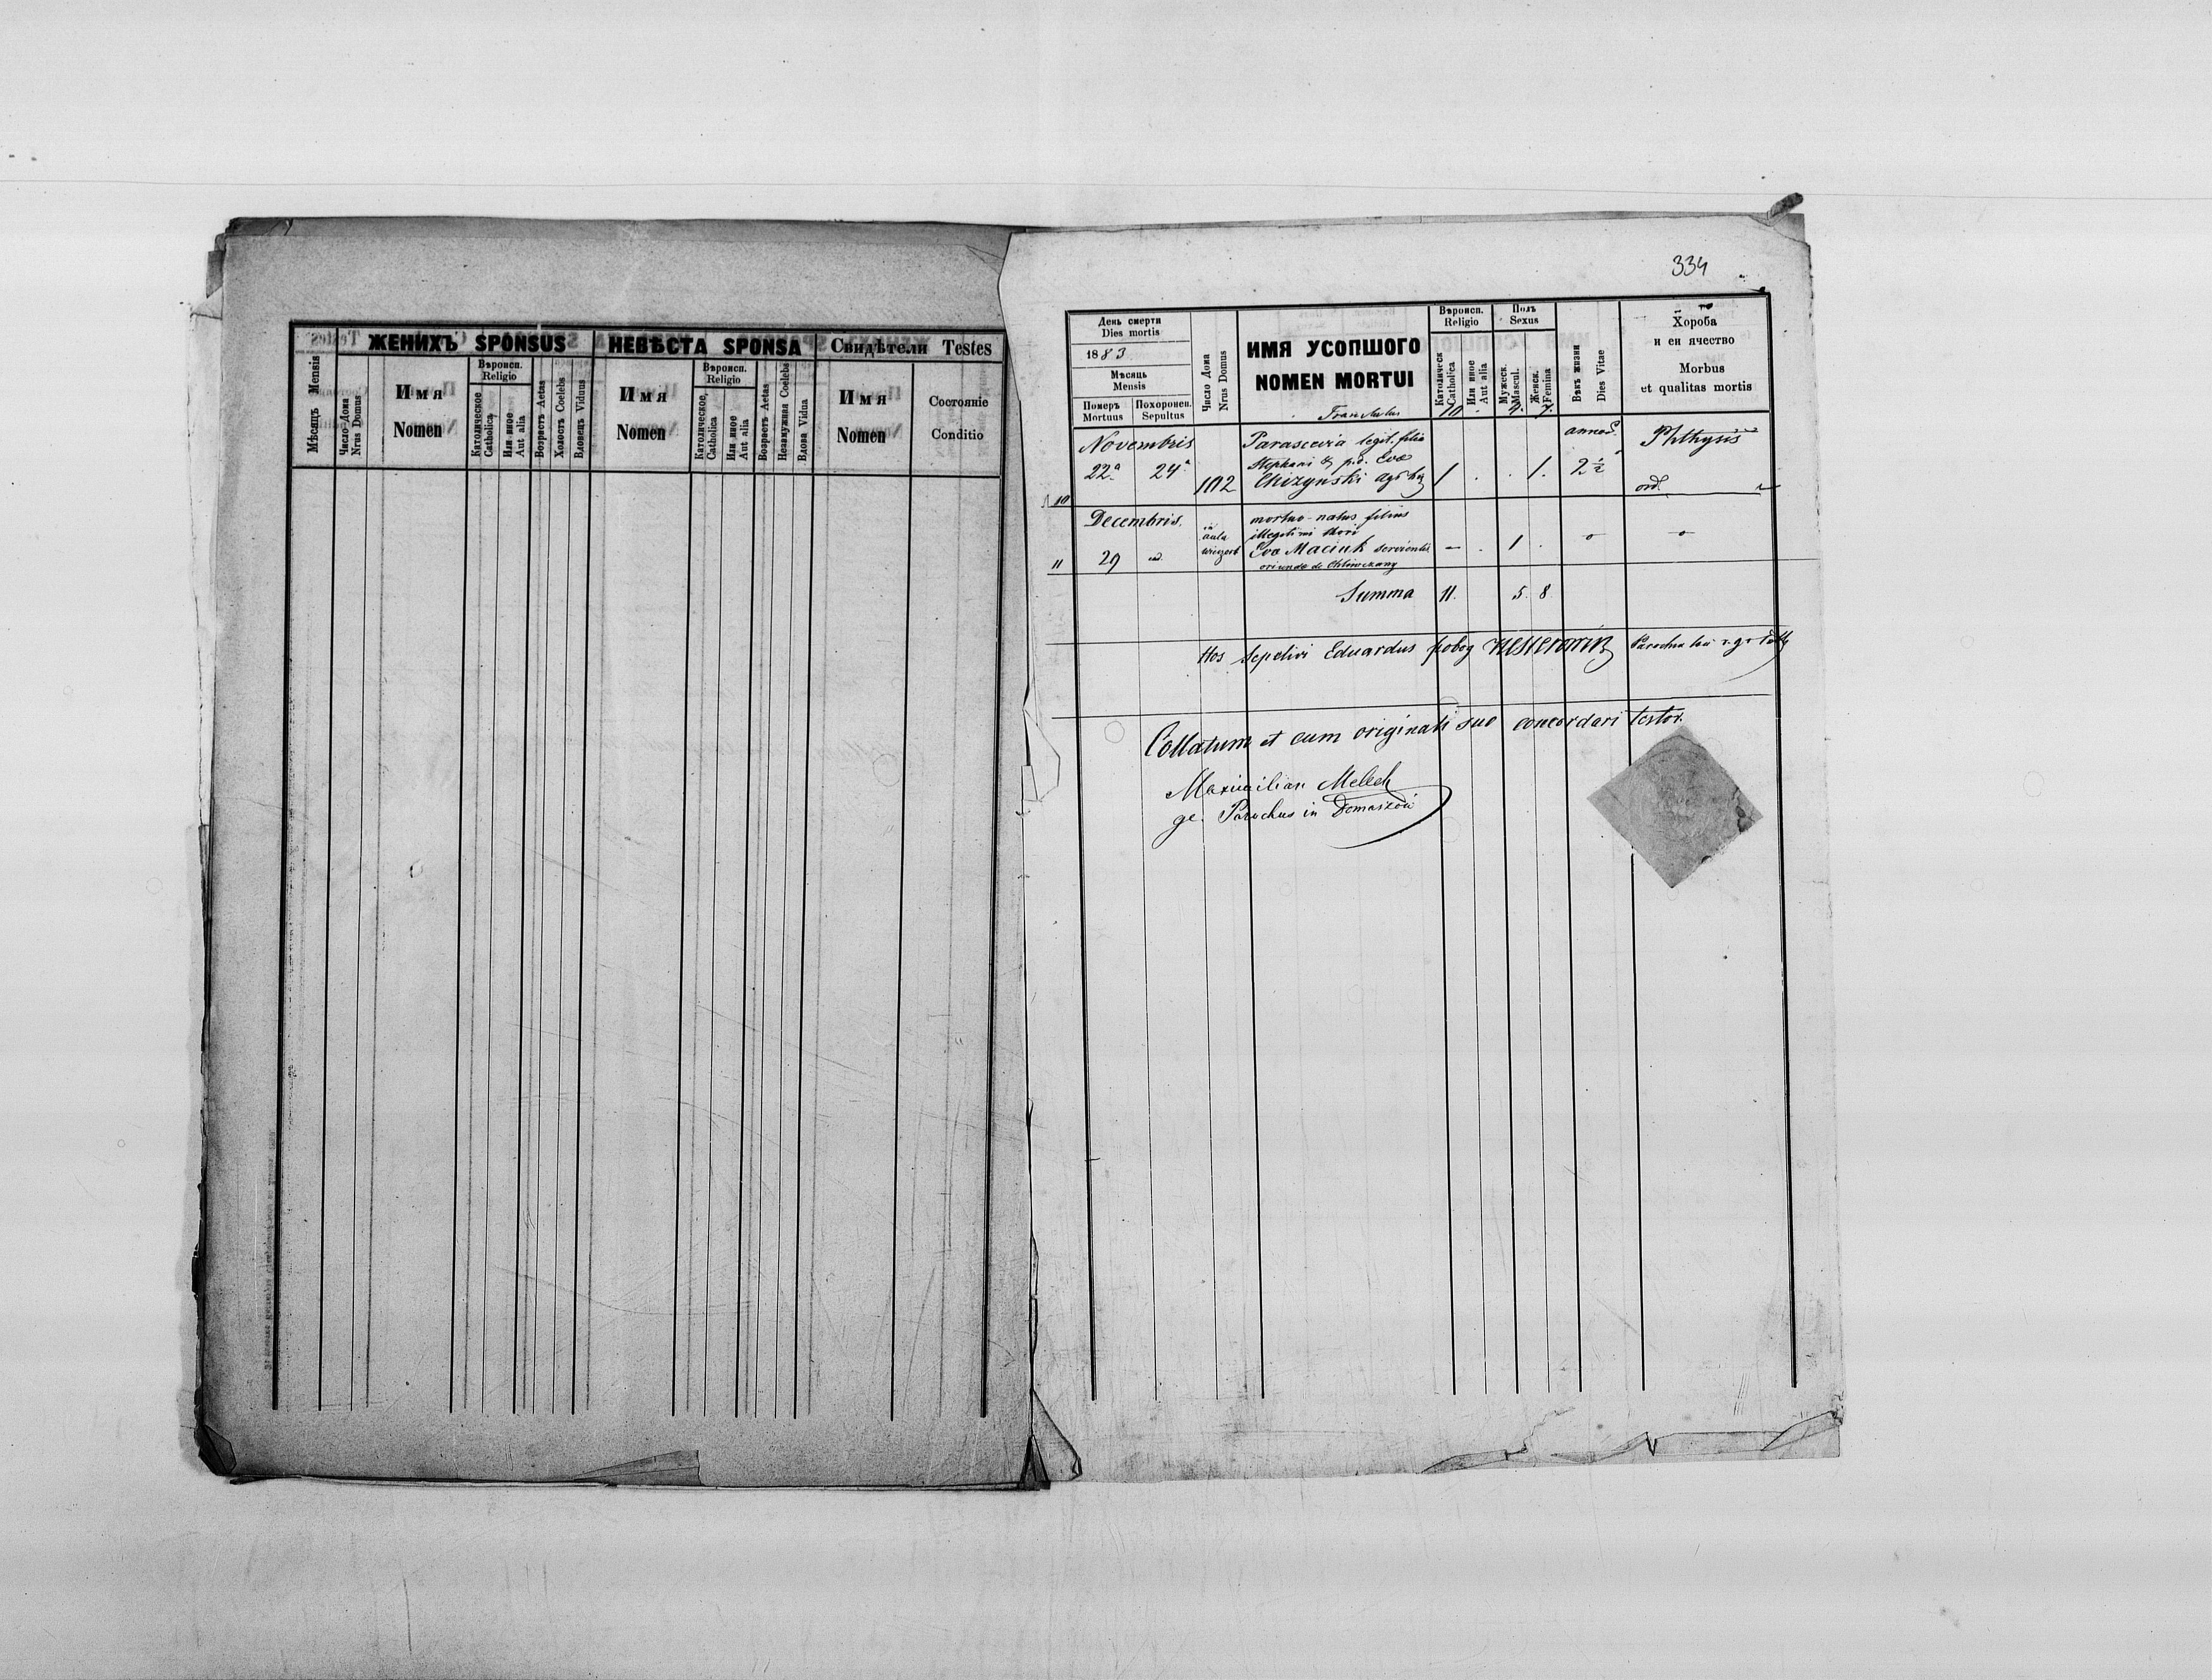 ЖЕНИХЪ SPONSUS
НЕВѢСТА SPONSA
Свидѣтели Testes
Мѣсяць Mensis
Число Дома
Nrus Domus
Имя
Nomen
Вѣроисп.
Religio
Католическое
Catholica
Или иное
Aut alia
Возрастъ Aetas
Холостъ Coelebs
Вдовець Viduus
Имя
Nomen
Вѣроисп.
Religio
Католическое,
Catholica
Или иное
Aut alia
Возрастъ Aetas
Незамужная Coelebs
Вдова Vidua
Имя
Nomen
Состояніе
Conditio
334
День смерти
Dies mortis
1883
Мѣсяць
Mensis
Померъ
Mortuus
Похоронен.
Sepultus
Число Дома
Nrus Domus
ИМЯ УСОПШОГО
NOMEN MORTUI
Translatus
Вѣроисп.
Religio
Католическ
Catholica
10
Или иное
Aut alia
Полъ
Sexus
Мужеск.
Mascul.
4.
Женск.
Femina
7.
Вѣкъ жизни
Dies Vitae
Хороба
и еи ячество
Morbus
et qualitas mortis
Novembris
Parascevia legit. filia
Phthysis
22a 24a
Stephani & p.d. Evae
2 1/2
10
102
Chizynski
1 . . 1.
ord.
Decembris
in
aula
mortuo-natus filius
illegitimi thori
11
29
Eva Maciuk
- . 1 .
oriunda de
Summa 11. 5. 8
Hos sepelivi Eduardus
Collatum et cum originali suo concordari testor.
Maximilian Melech
gc. Parochus in Domaszów